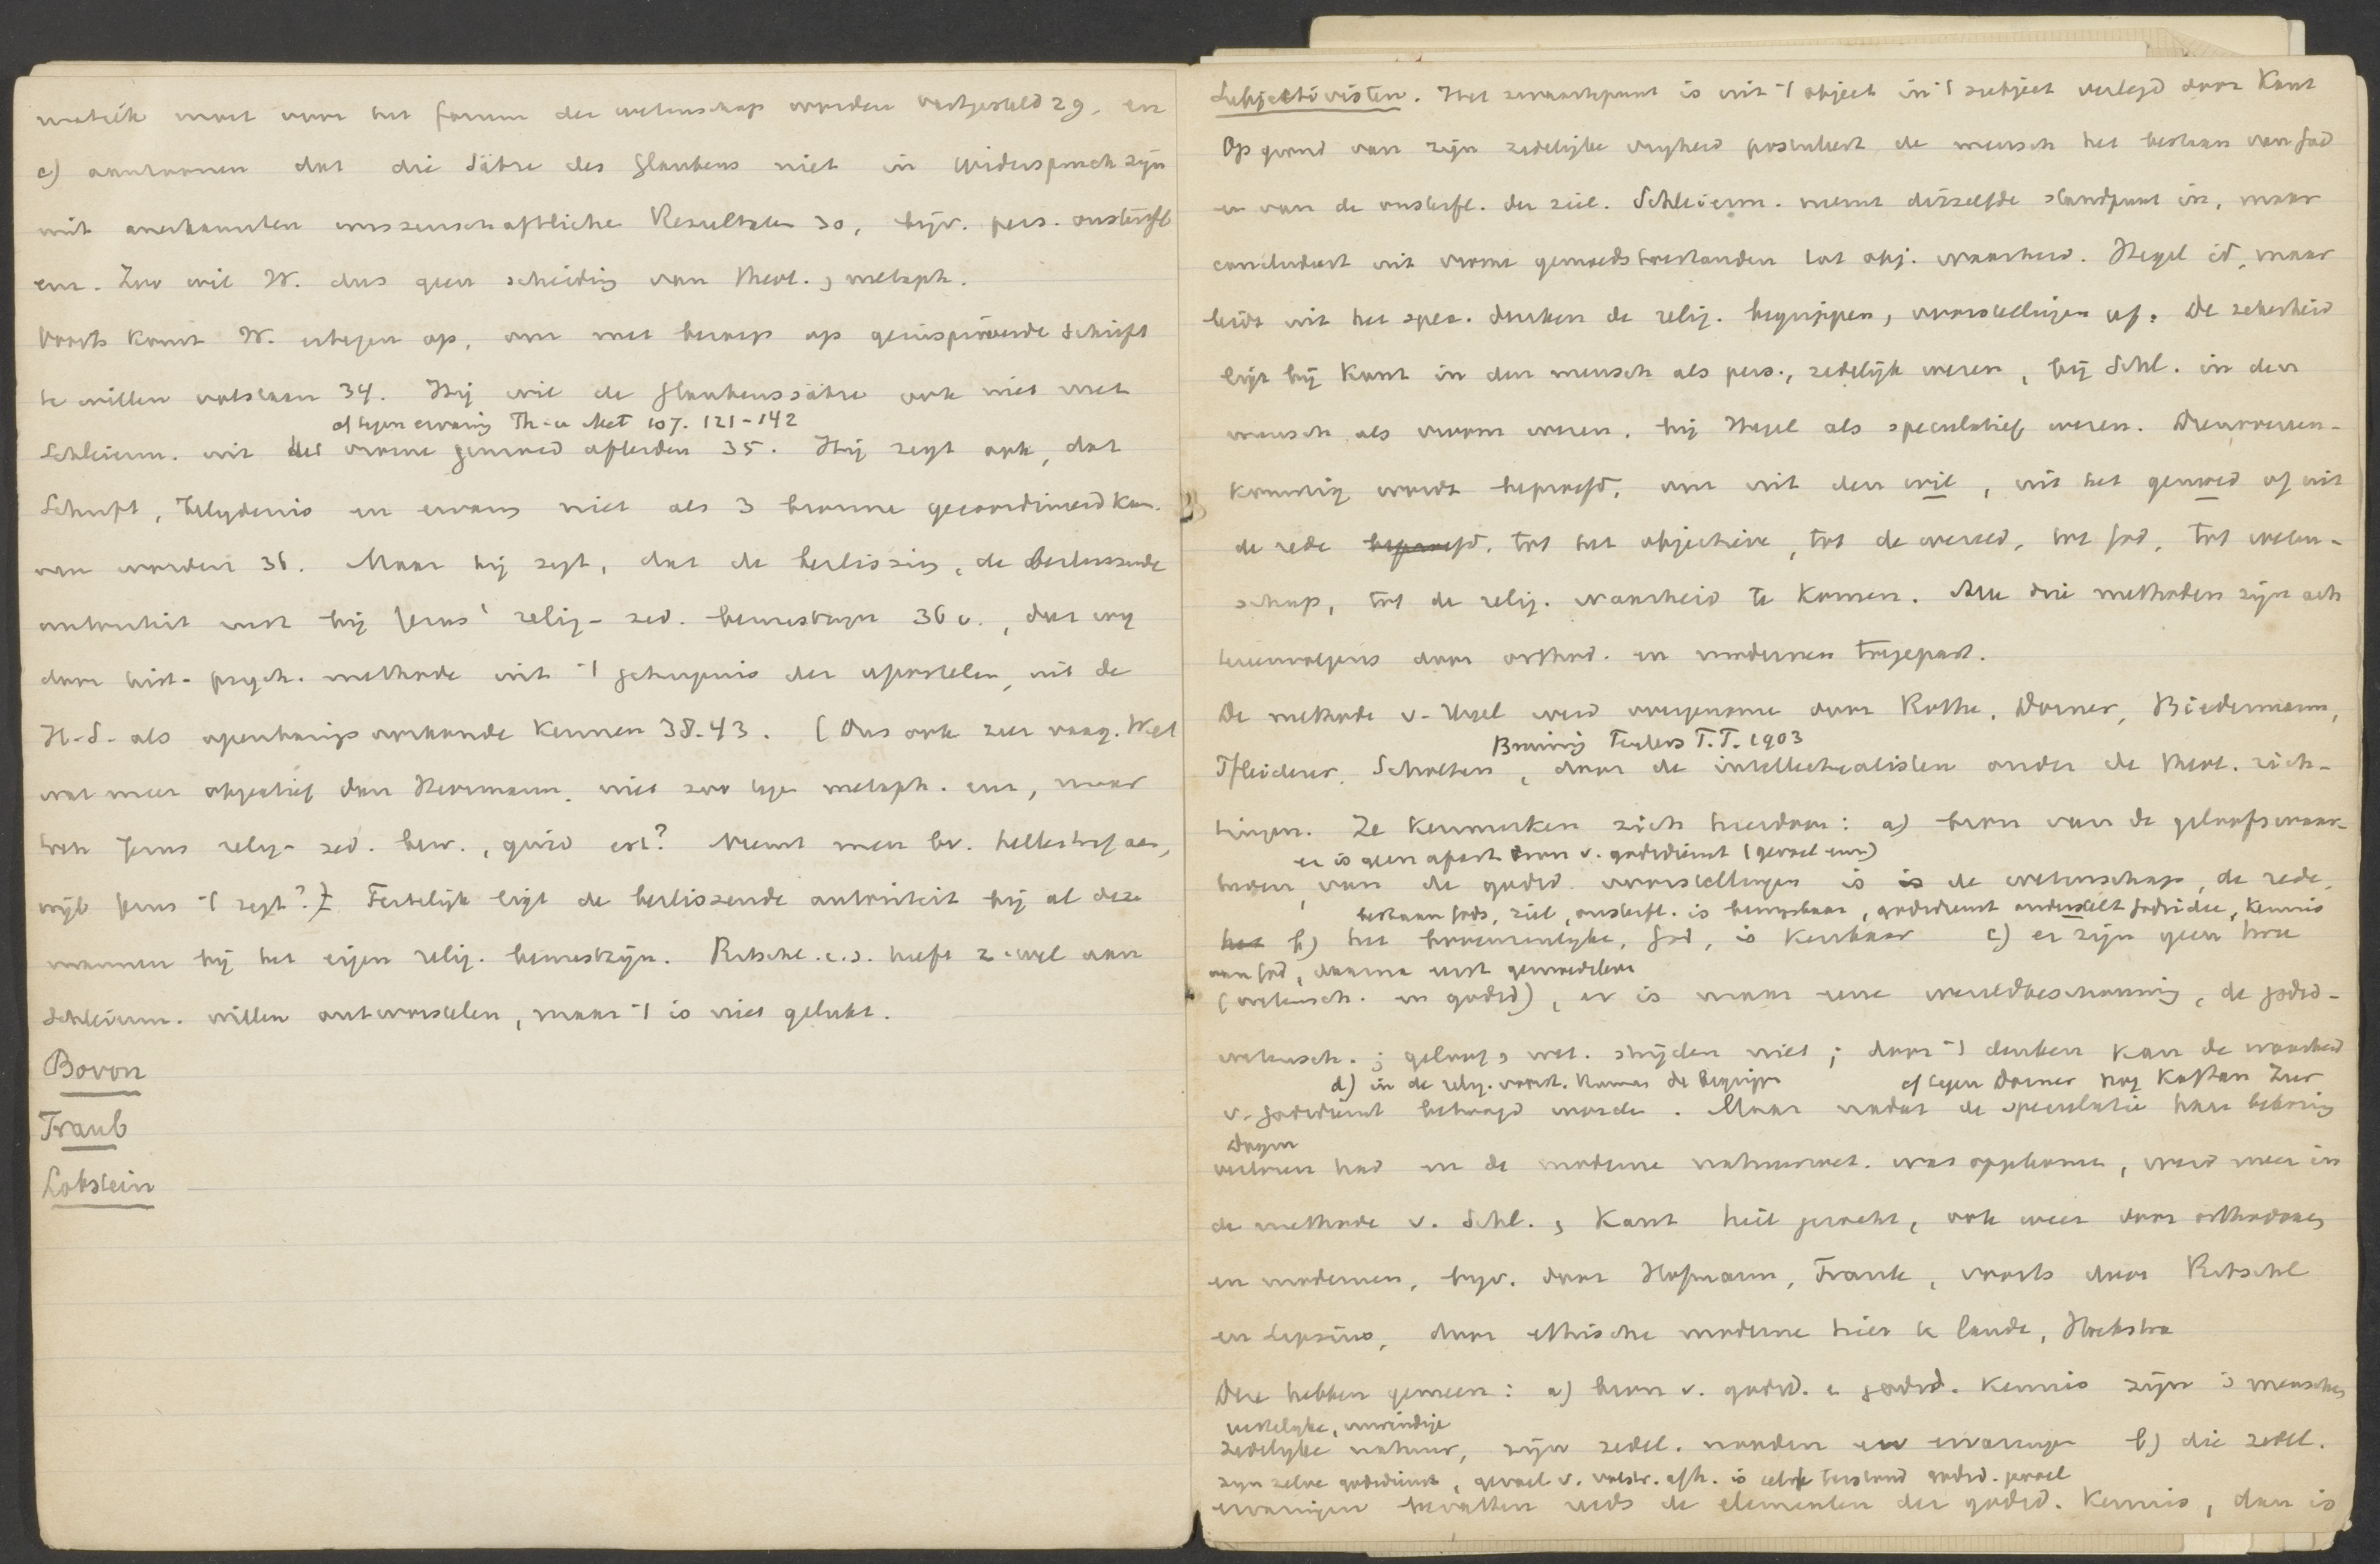 matik moet voor het forum der wetenschap worden vastgesteld 29. en
c) aantoonen dat die Sätze des Glaubens niet in Widerspruch zijn
mit anerkannten wissenschaftliche Resultaten 30, bijv. pers. onsterfl
enz. Zoo wil W. dus geen scheiding van theol. , metaph.
Voorts komt W. ertegen op, om met beroep op geinspireerde Schrift
te willen volstaan 34. Hij wil de Glaubenssätze ook niet met
cf tegen ervaring Th. u Met 107. 121-142
Schleierm. uit het vrome gemoed afleiden 35. Hij zegt ook, dat
Schrift, belydenis en ervaring niet als 3 bronnen gecoordineerd kun-
nen worden 36. Maar hij zegt, dat de beslissing, de beslissende
autoriteit rust bij Jezus' relig-zed. bewustzijn 36 v., dat wij
door hist-psych. methode uit 't getuigenis der apostelen, uit de
H.S. als openbarings oorkonde kennen 38-43. (Dus ook zeer vaag. Wel
wat meer objectief dan Herrmann, niet zoo tegen metaph. enz, maar
toch Jezus relig-zed. bew., quid est? Neemt men bv. hellestraf aan,
wijl Jezus 't zegt?) Feitelijk ligt de beslissende autoriteit bij al deze
mannen bij het eigen relig. bewustzijn. Ritschl c.s. heeft z. wel aan
Schleierm. willen ontworstelen, maar 't is niet gelukt.
Bovon
Traub
Lobstein
Subjectivisten. Het zwaartepunt is uit 't object in 't subject verlegd door Kant
Op grond van zijn zedelijke vryheid postuleert de mensch het bestaan van God
en van de onsterfl. der ziel. Schleierm. neemt ditzelfde standpunt in, maar
concludeert uit vrome gemoedstoestanden tot obj. waarheid. Hegel id, maar
leidt uit het spec. denken de relig. begrippen, voorstellingen af. De zekerheid
ligt bij Kant in den mensch als pers., zedelijk wezen, bij Schl. in den
mensch als vroom wezen, bij Hegel als speculatief wezen. Dienovereen-
komstig wordt beproefd, om uit den wil, uit het gemoed of uit
de rede beproefd, tot het objectieve, tot de wereld, tot God, tot weten-
schap, tot de relig. waarheid te komen. Alle drie methoden zijn ach
tereenvolgens door orthod. en modernen toegepast.
De methode v. Hegel werd overgenomen door Rothe, Dorner, Biedermann,
Bruining Teylers T.T. 1903
Pfleiderer, Scholten, door de intellectualisten onder de theol. rich-
tingen. Ze kenmerken zich hierdoor: a) bron van de geloofswaar-
er is geen apart bron v. godsdienst (gevoel enz)
heden, van de godsd. voorstellingen is is de wetenschap, de rede,
bestaan Gods, ziel, onsterfl. is bewysbaar, godsdienst onderstelt Godsidee, kennis
het b) het bovenzinlijke, God, is kenbaar c) er zijn geen twee
van God, daarna eerst gemoedsleven
(wetensch. en godsd), er is maar eene wereldbeschouwing, de godsd-
wetensch. ; geloof, wet. strijden niet; door 't denken kan de waarheid
d) in de relig. voorst. komen de begrippen cf tegen Dorner nog Kaftan Zur
v. godsdienst betoogd worden. Maar nadat de speculatie haar bekoring
Dogm
verloren had en de moderne natuurwet. was opgekomen, werd meer in
de methode v. Schl. , Kant heil gezocht, ook weer door orthodoxen
en modernen, bijv. door Hofmann, Frank, voorts door Ritschl
en Lipsius, door ethische moderne hier te lande, Hoekstra
Deze hebben gemeen: a) bron v. godsd. e godsd. kennis zijn 's menschen
redelijke, inwendige
zedelijke natuur, zijn zedel. nooden en ervaringen b) die zedel.
zijn zelve godsdienst, gevoel v. volstr. afh. is
ervaringen bevatten reeds de elementen der godsd. kennis, dan is